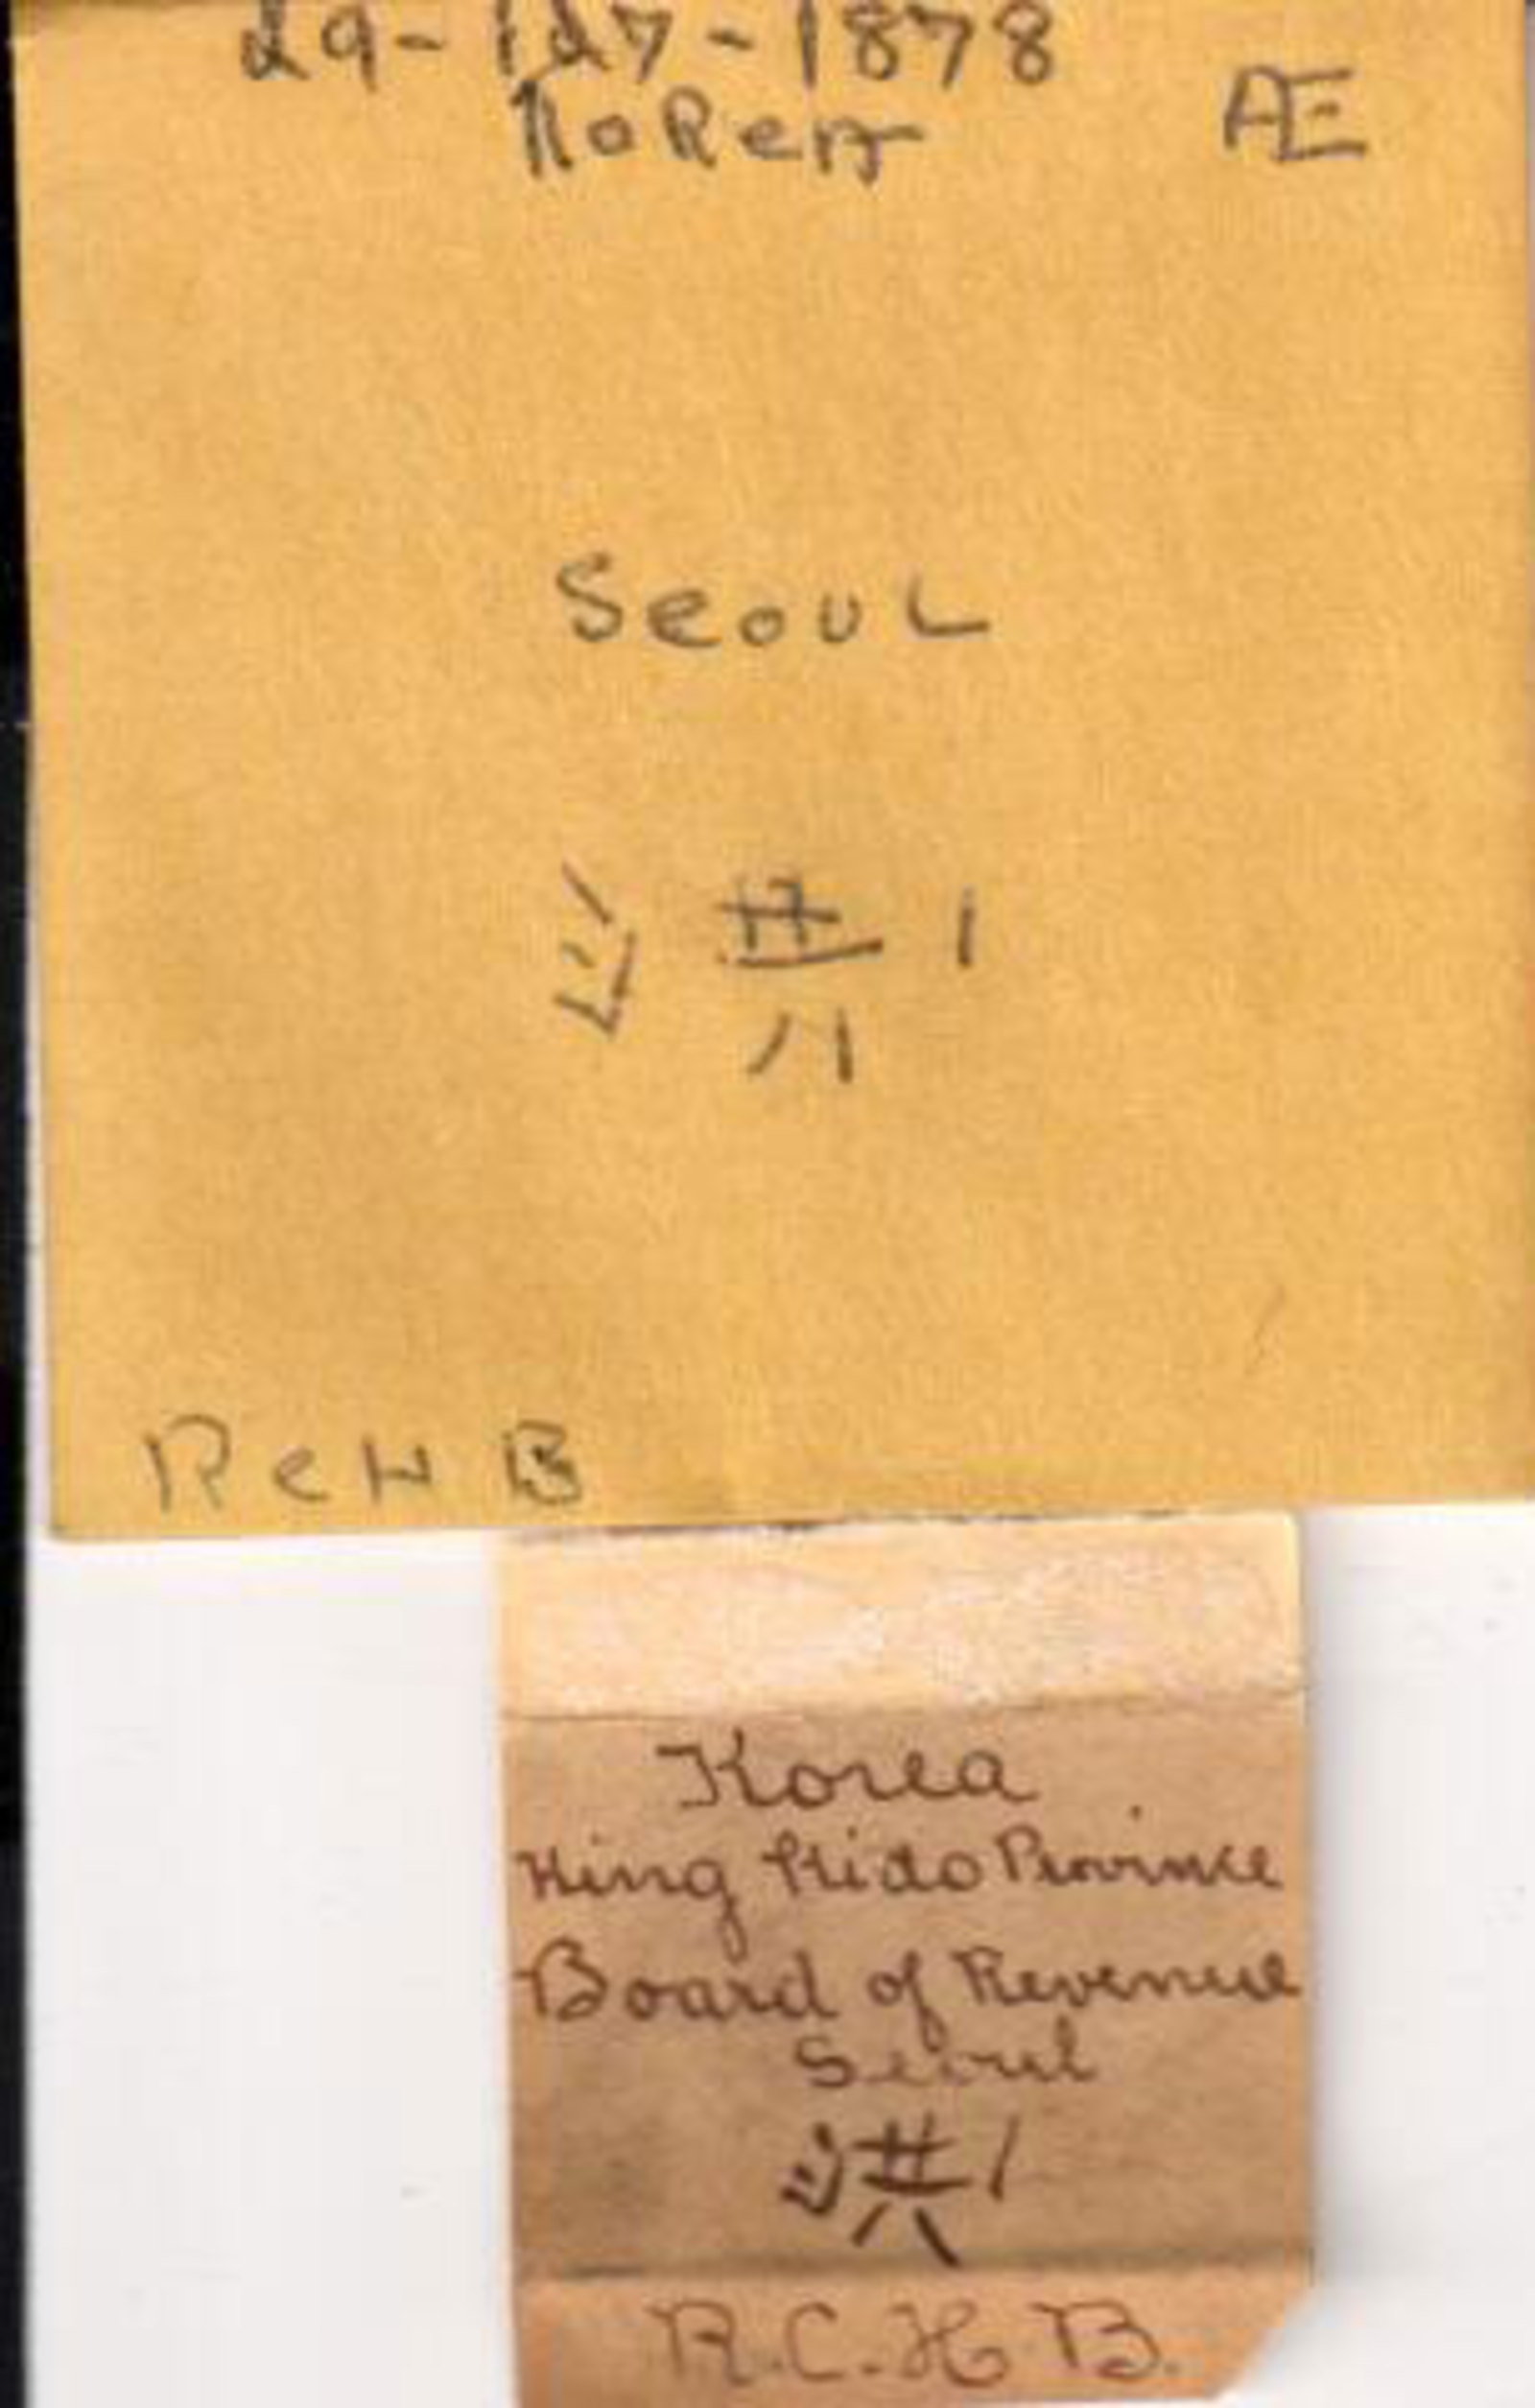 29-127-1878
KoRea Æ
SeouL
洪 1
RCHB
Korea
King Kido Province
Board of Revenue
Seoul
洪 1
R.C.H.B.